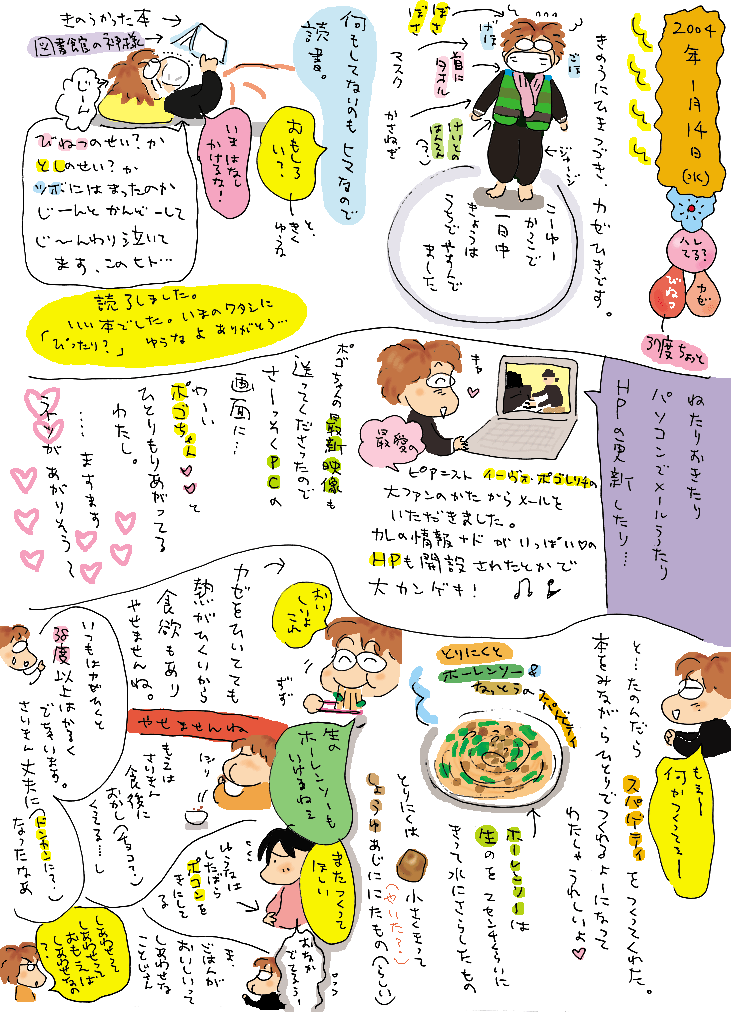 2004年1月14日(水)
ハレてる?
びねつ
カゼ
37度ちょっと
きのうにひきつづき、カゼひきです。
ぼさ
ぼさ
げほ
ごほ
首にタオル
マスク
かさねぎ
けいとのはんてん(?)
ジャージ
こーゆー
かっこで
一日中
きょうは
うちでやすんで
ました
何もしてないのもヒマなので
読書。
きのうかった本→
図書館の神様
じーん
おもしろい?
と、
きく
ゆうな
いまはなしかけるな!
びねつのせい?か
としのせい?か
ツボにはまったのか
じーんとかんどーして
じ〜んわり泣いて
ます、このヒト…
読了しました。
いい本でした。いまのワタシに
「ぴったり?」ゆうなよありがとう…
ねたりおきたり
パソコンでメールうったり
HPの更新したり…
キャ
最愛の
ピアニスト イーヴォ・ポゴレリチの
大ファンのかたからメールを
いただきました。
カレの情報ナドがいっぱい♡の
HPも開設されたとかで
大カンゲキ!
ポゴちゃんの最新映像も
送ってくださったので
さーっそくPCの
画面に…
わーい
ポゴちゃん♡♡と
ひとりもりあがってる
わたし。
……ますます
ネツがあがりそう〜
もぇ〜
何かつくってぇ〜
と…たのんだら
スパゲティをつくってくれた。
本をみながらひとりでつくれるよーになって
わたしゃうれしいよ♡
とりにくと
ホーレンソー&
なっとうのスパゲティ
ホーレンソーは
生のを2センチくらいに
きって水にさらしたもの
とりにくは
小さくきって
(やいた?)
しょうゆあじににたもの(らしい)
おいしいよこれ
ずず
生の
ホーレンソーも
いけるねぇ
またつくって
ほしい
おなかでてるぅ!
カゼをひいてても
熱がひくいから
食欲もあり
やせませんね。
やせませんね
いつもはカゼひくと
38度以上はかるく
でてまいます。
さいきん丈夫に
なったなあ
(ドンカンに?)
もえは
さいきん
食後に
おかし(チョコ?)
くえる…し
ゆうなは
したばら
ポコンを
きにしてる
ま、
ごはんが
おいしいって
しあわせな
ことじゃ
しあわせって
しあわせって
おもえば
しあわせなの
?